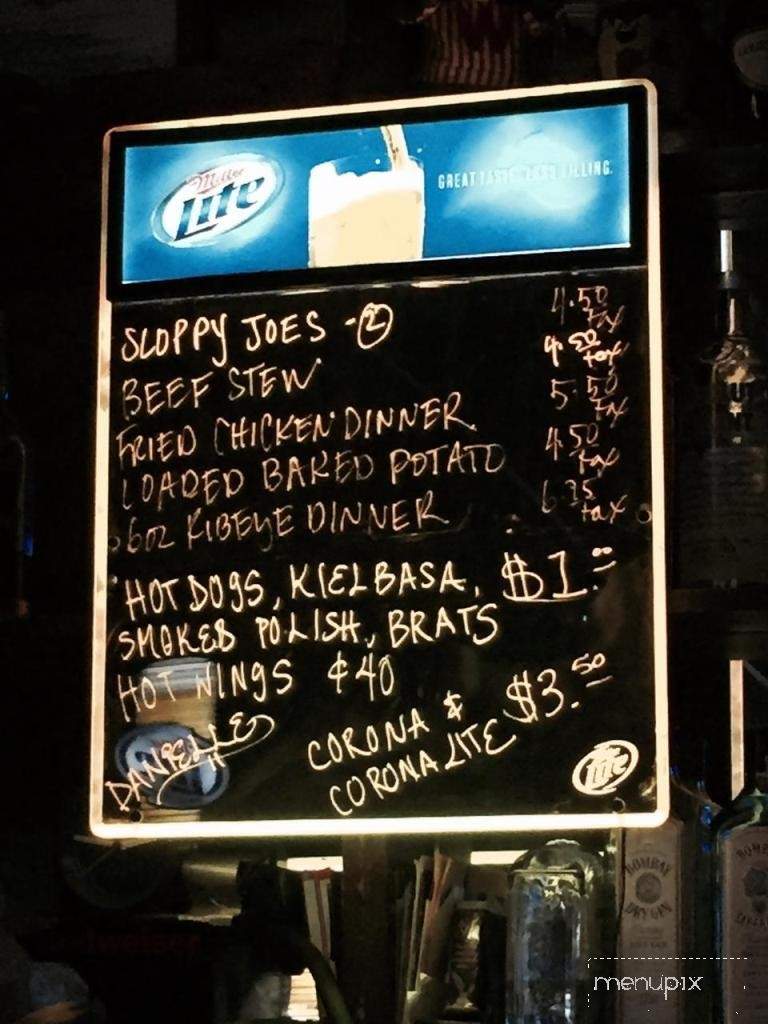 Miller Lite
GREAT TASTE. LESS FILLING.
SLOPPY JOES -② 4.50 tax
BEEF STEW 4.50 tax
FRIED CHICKEN DINNER 5.50 tax
LOADED BAKED POTATO 4.50 tax
6oz RIBEYE DINNER 6.35 tax
HOT DOGS, KIELBASA, $1.00
SMOKED POLISH, BRATS
HOT WINGS ¢40
CORONA & $3.50
CORONA LITE
DANIELLE
Lite
BOMBAY
DRY GIN
BOMBAY
menupix